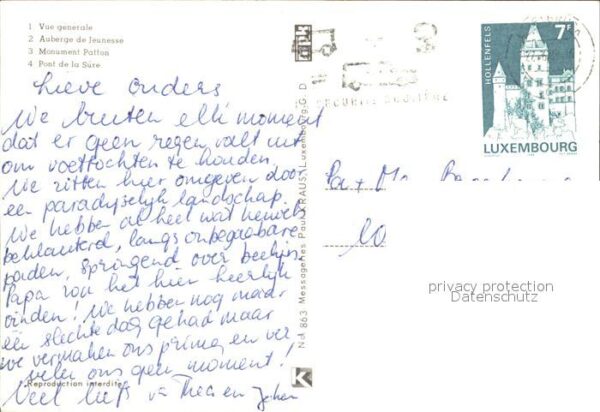 1 Vue generale
2 Auberge de Jeunesse
3 Monument Patton
4 Pont de la Sûre
Lieve ouders
We benutten elk moment
dat er geen regen valt uit
om voettochten te houden.
We zitten hier omgeven door
een paradijselijk landschap.
We hebben al heel wat heuvels
beklauterd, langs onbegaanbare
paden, springend over beekjes.
Papa zou het hier heerlijk
vinden! We hebben nog maar
één slechte dag gehad maar
we vermaken ons prima en ver
velen ons geen moment!
Veel liefs v Thea en Johan
Reproduction interdite
No. 863 Messageries Paul KRAUS, Luxembourg-G. D.
K
SECURITE ROUTIERE
HOLLENFELS
7F
LUXEMBOURG
Pa + Ma
10
privacy protection
Datenschutz